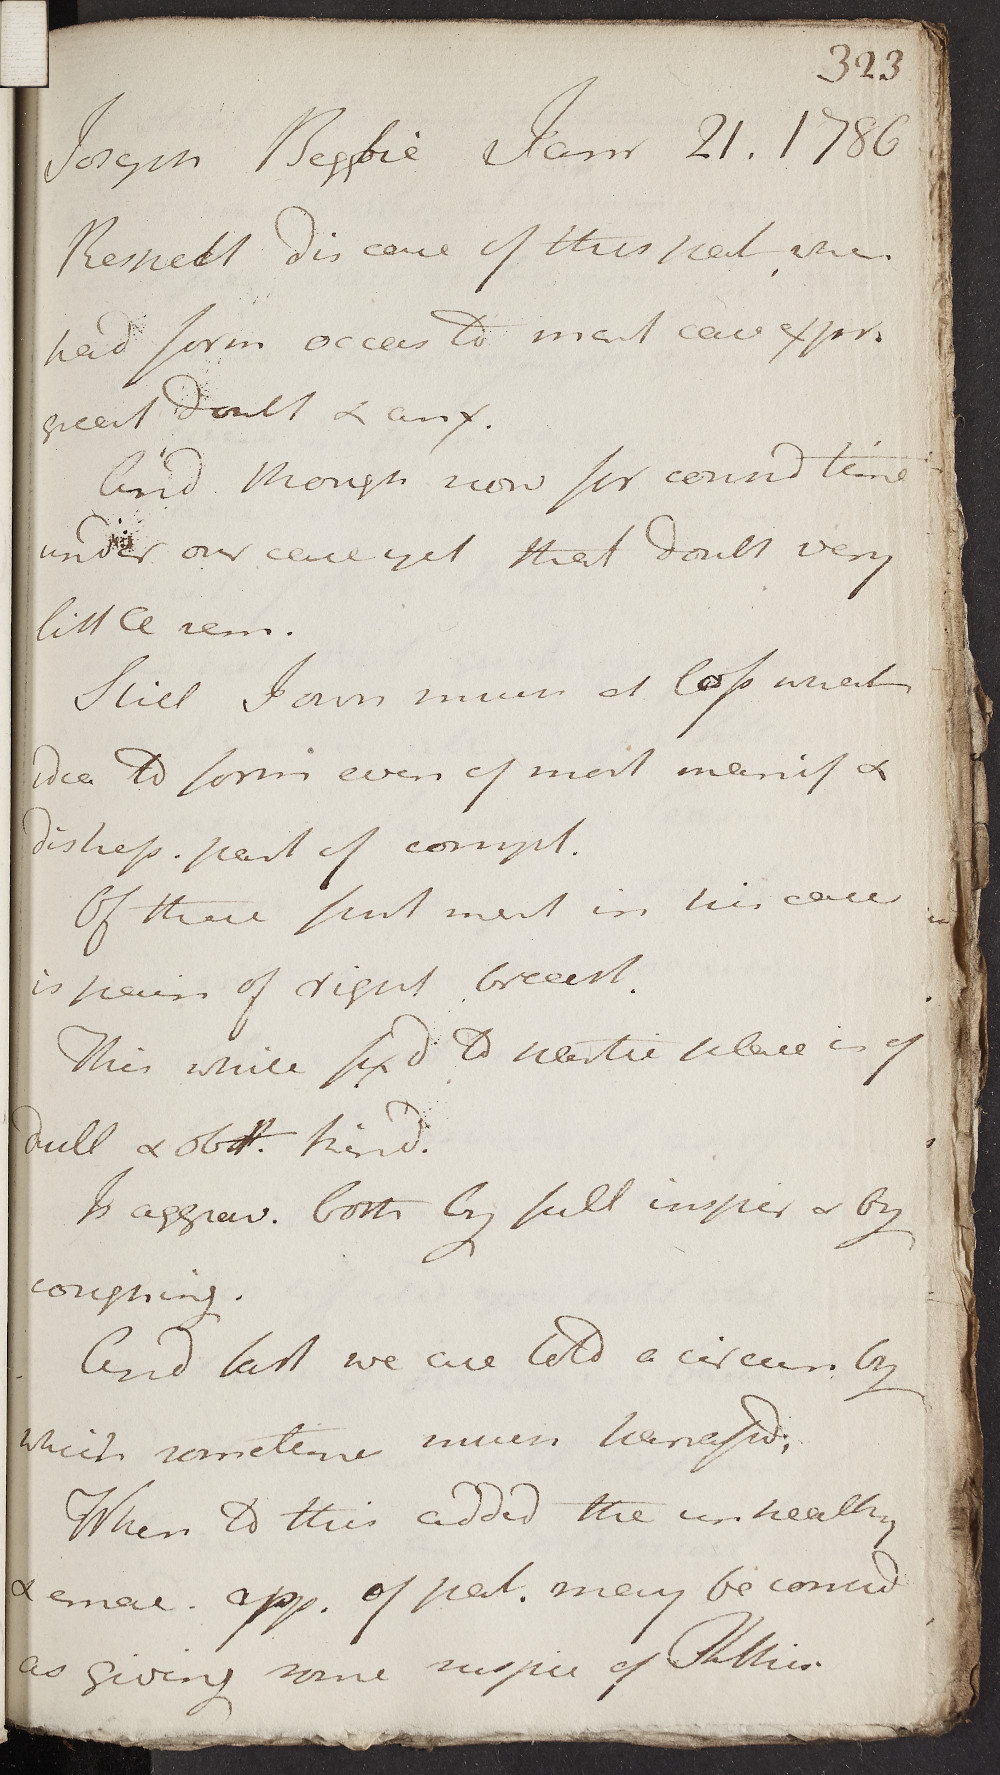 323
Joseph Begbie Janr 21. 1786
Respect disease of this pat. when
had form occas to ment case expr.
great doubt & anx.
And though now for considd time
under our care yet that doubt very
little rem.
Still I own much at loss what
idea to form even of most manif &
dishess. part of compl.
Of these first ment in his case
is pain of right breast.
This while fixd to partic place is of
dull & obt. kind.
Is aggrav. both by full inspir & by
coughing.
And last we are told a circum. by
which sometime much harassd;
When to this added the unhealthy
& emac. app. of pat. may be consid
as giving some suspic of Phthis.